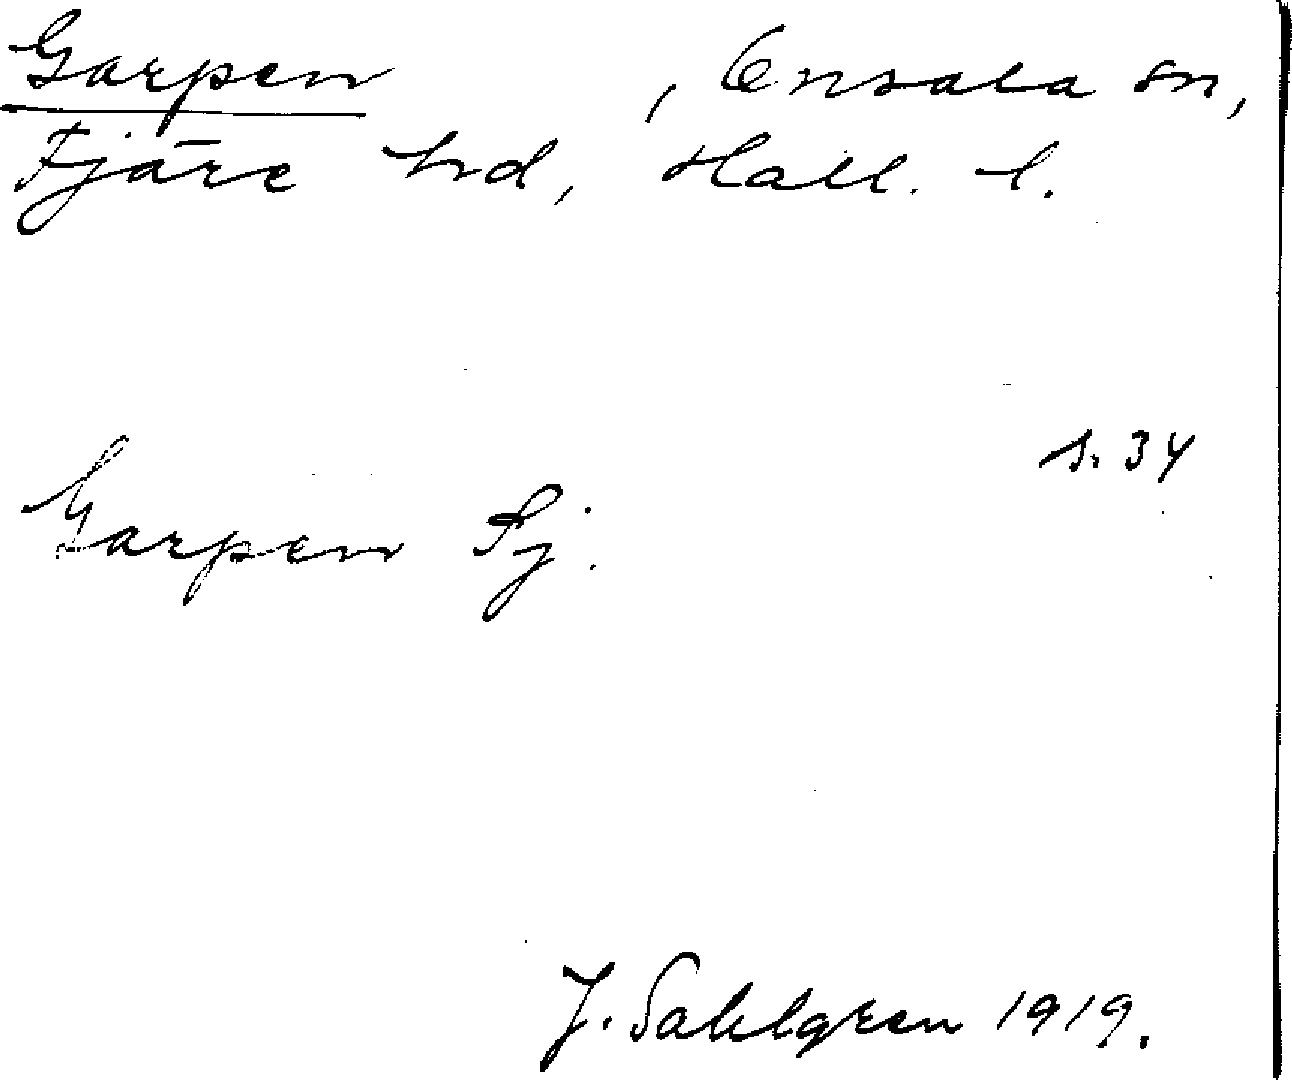 Garpen , Onsala sn,
Fjäre hd, Hall. l.
s. 34
Garpen Pj.
J. Sahlgren 1919.